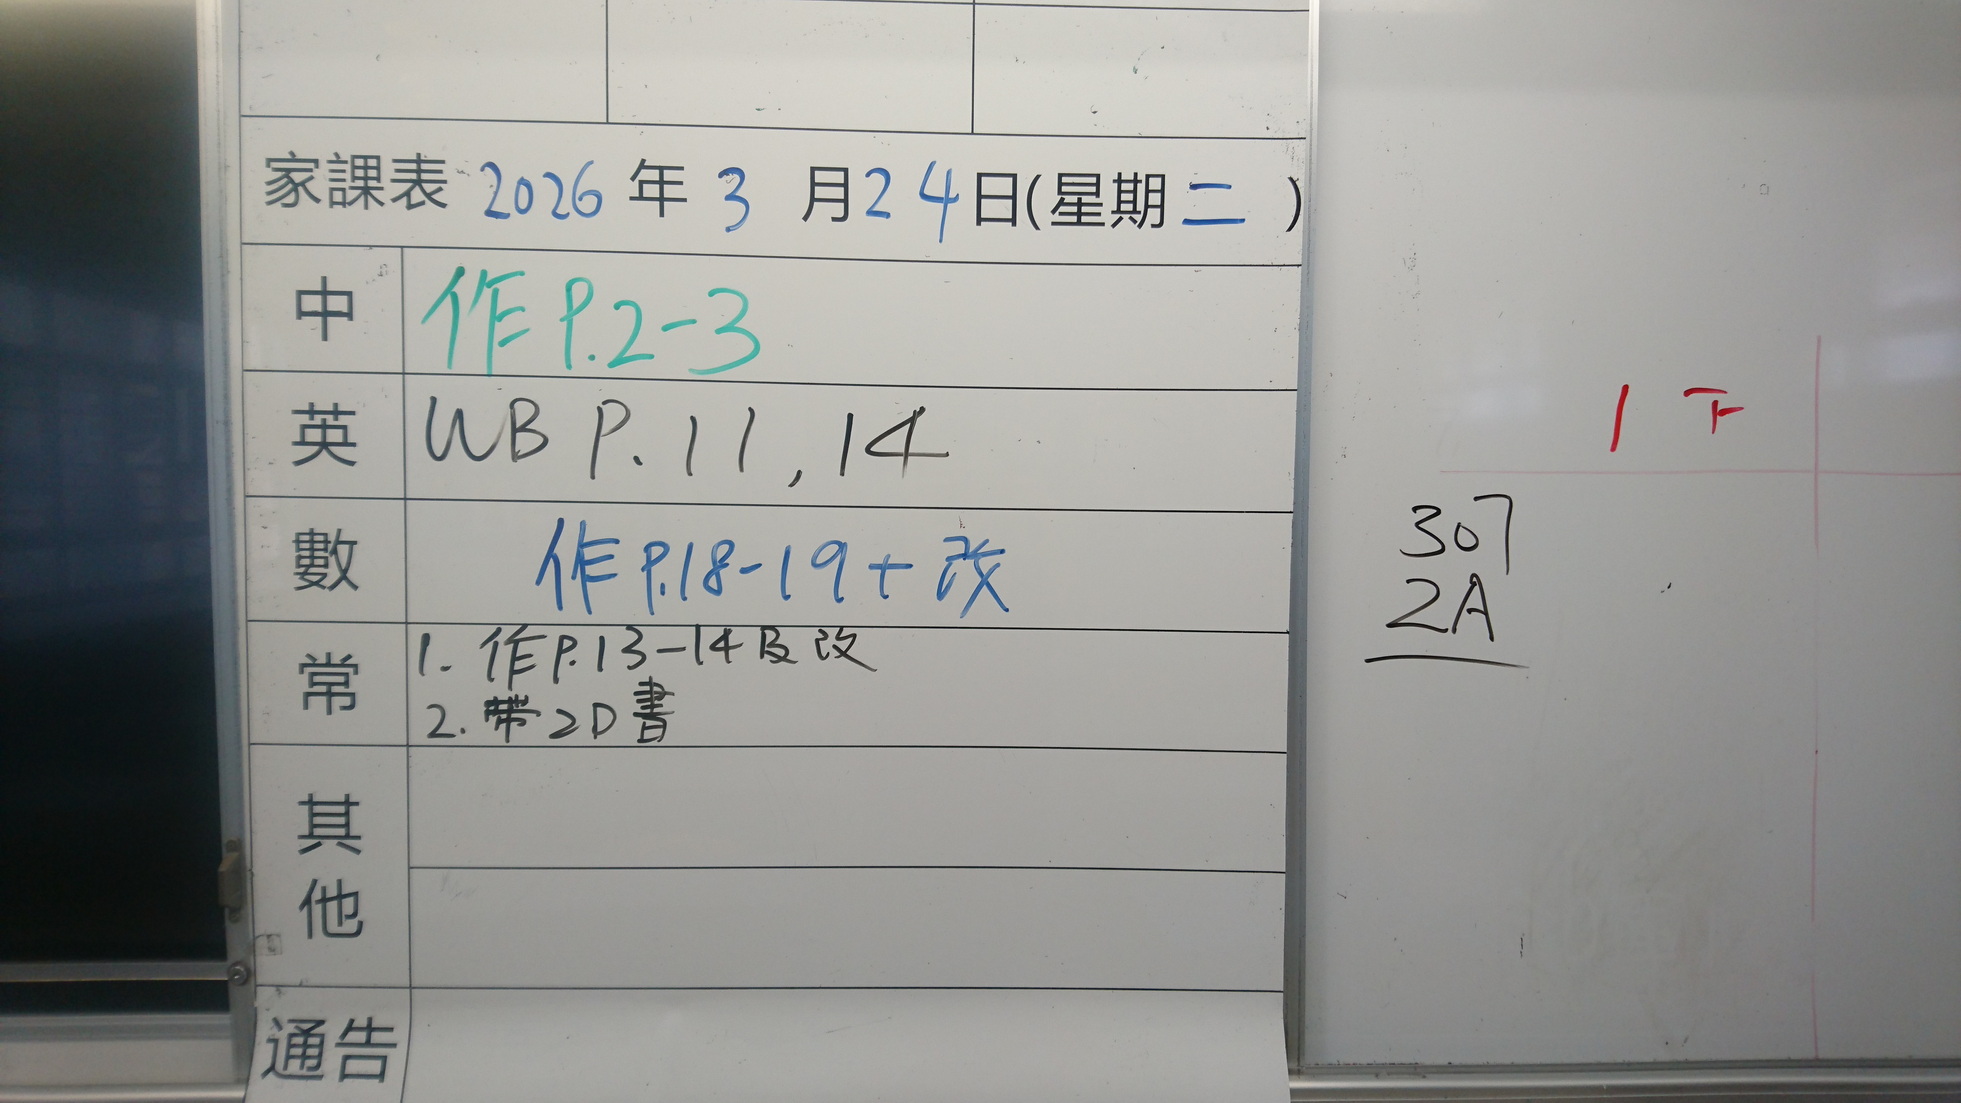 家課表 2026 年 3 月 24 日(星期 二 )
中 作 P.2-3
英 WB P.11, 14
數 作 P.18-19 + 改
常 1. 作 P.13-14 及 改
2. 帶 2D 書
其他
通告
1 下
307
2A